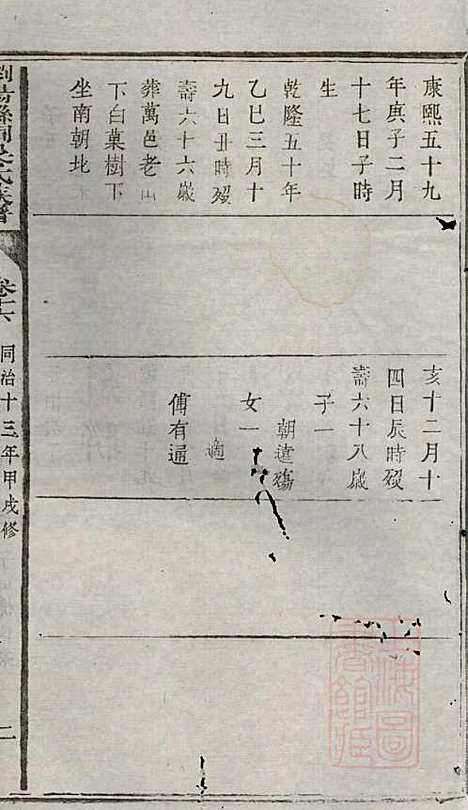 康熙五十九
年庚子二月
十七日子時
生
乾隆五十年
乙巳三月十
九日丑時殁
壽六十六歲
葬萬邑老山
下白菓樹下
坐南朝北
亥十二月十
四日辰時殁
壽六十八歲
子一
朝遠殤
女一
適
傅有通
氏族譜
卷十六
同治十三年甲戌修
二